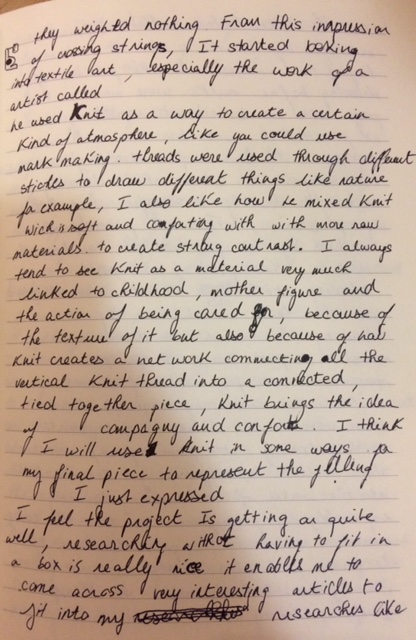 they weighted nothing From this impression
of crossing strings, It started looking
into textile art, especially the work of a
artist called
he used Knit as a way to create a certain
Kind of atmosphere, like you could use
mark making. threads were used through different
stiches to draw different things like nature
for example, I also like how he mixed Knit
wich is soft and comforting with with more raw
materials. to create strong contrast. I always
tend to see Knit as a material very much
linked to childhood, mother figure and
the action of being cared for, because of
the texture of it but also because of how
Knit creates a net work connecting all the
vertical Knit thread into a connected,
tied together piece, Knit brings the idea
of compagny and confort. I think
I will use Knit in some ways for
my final piece to represent the filling
I just expressed
I feel the project Is getting on quite
well, researching without having to fit in
a box is really nice it enables me to
come across very interesting articles to
fit into my researches like